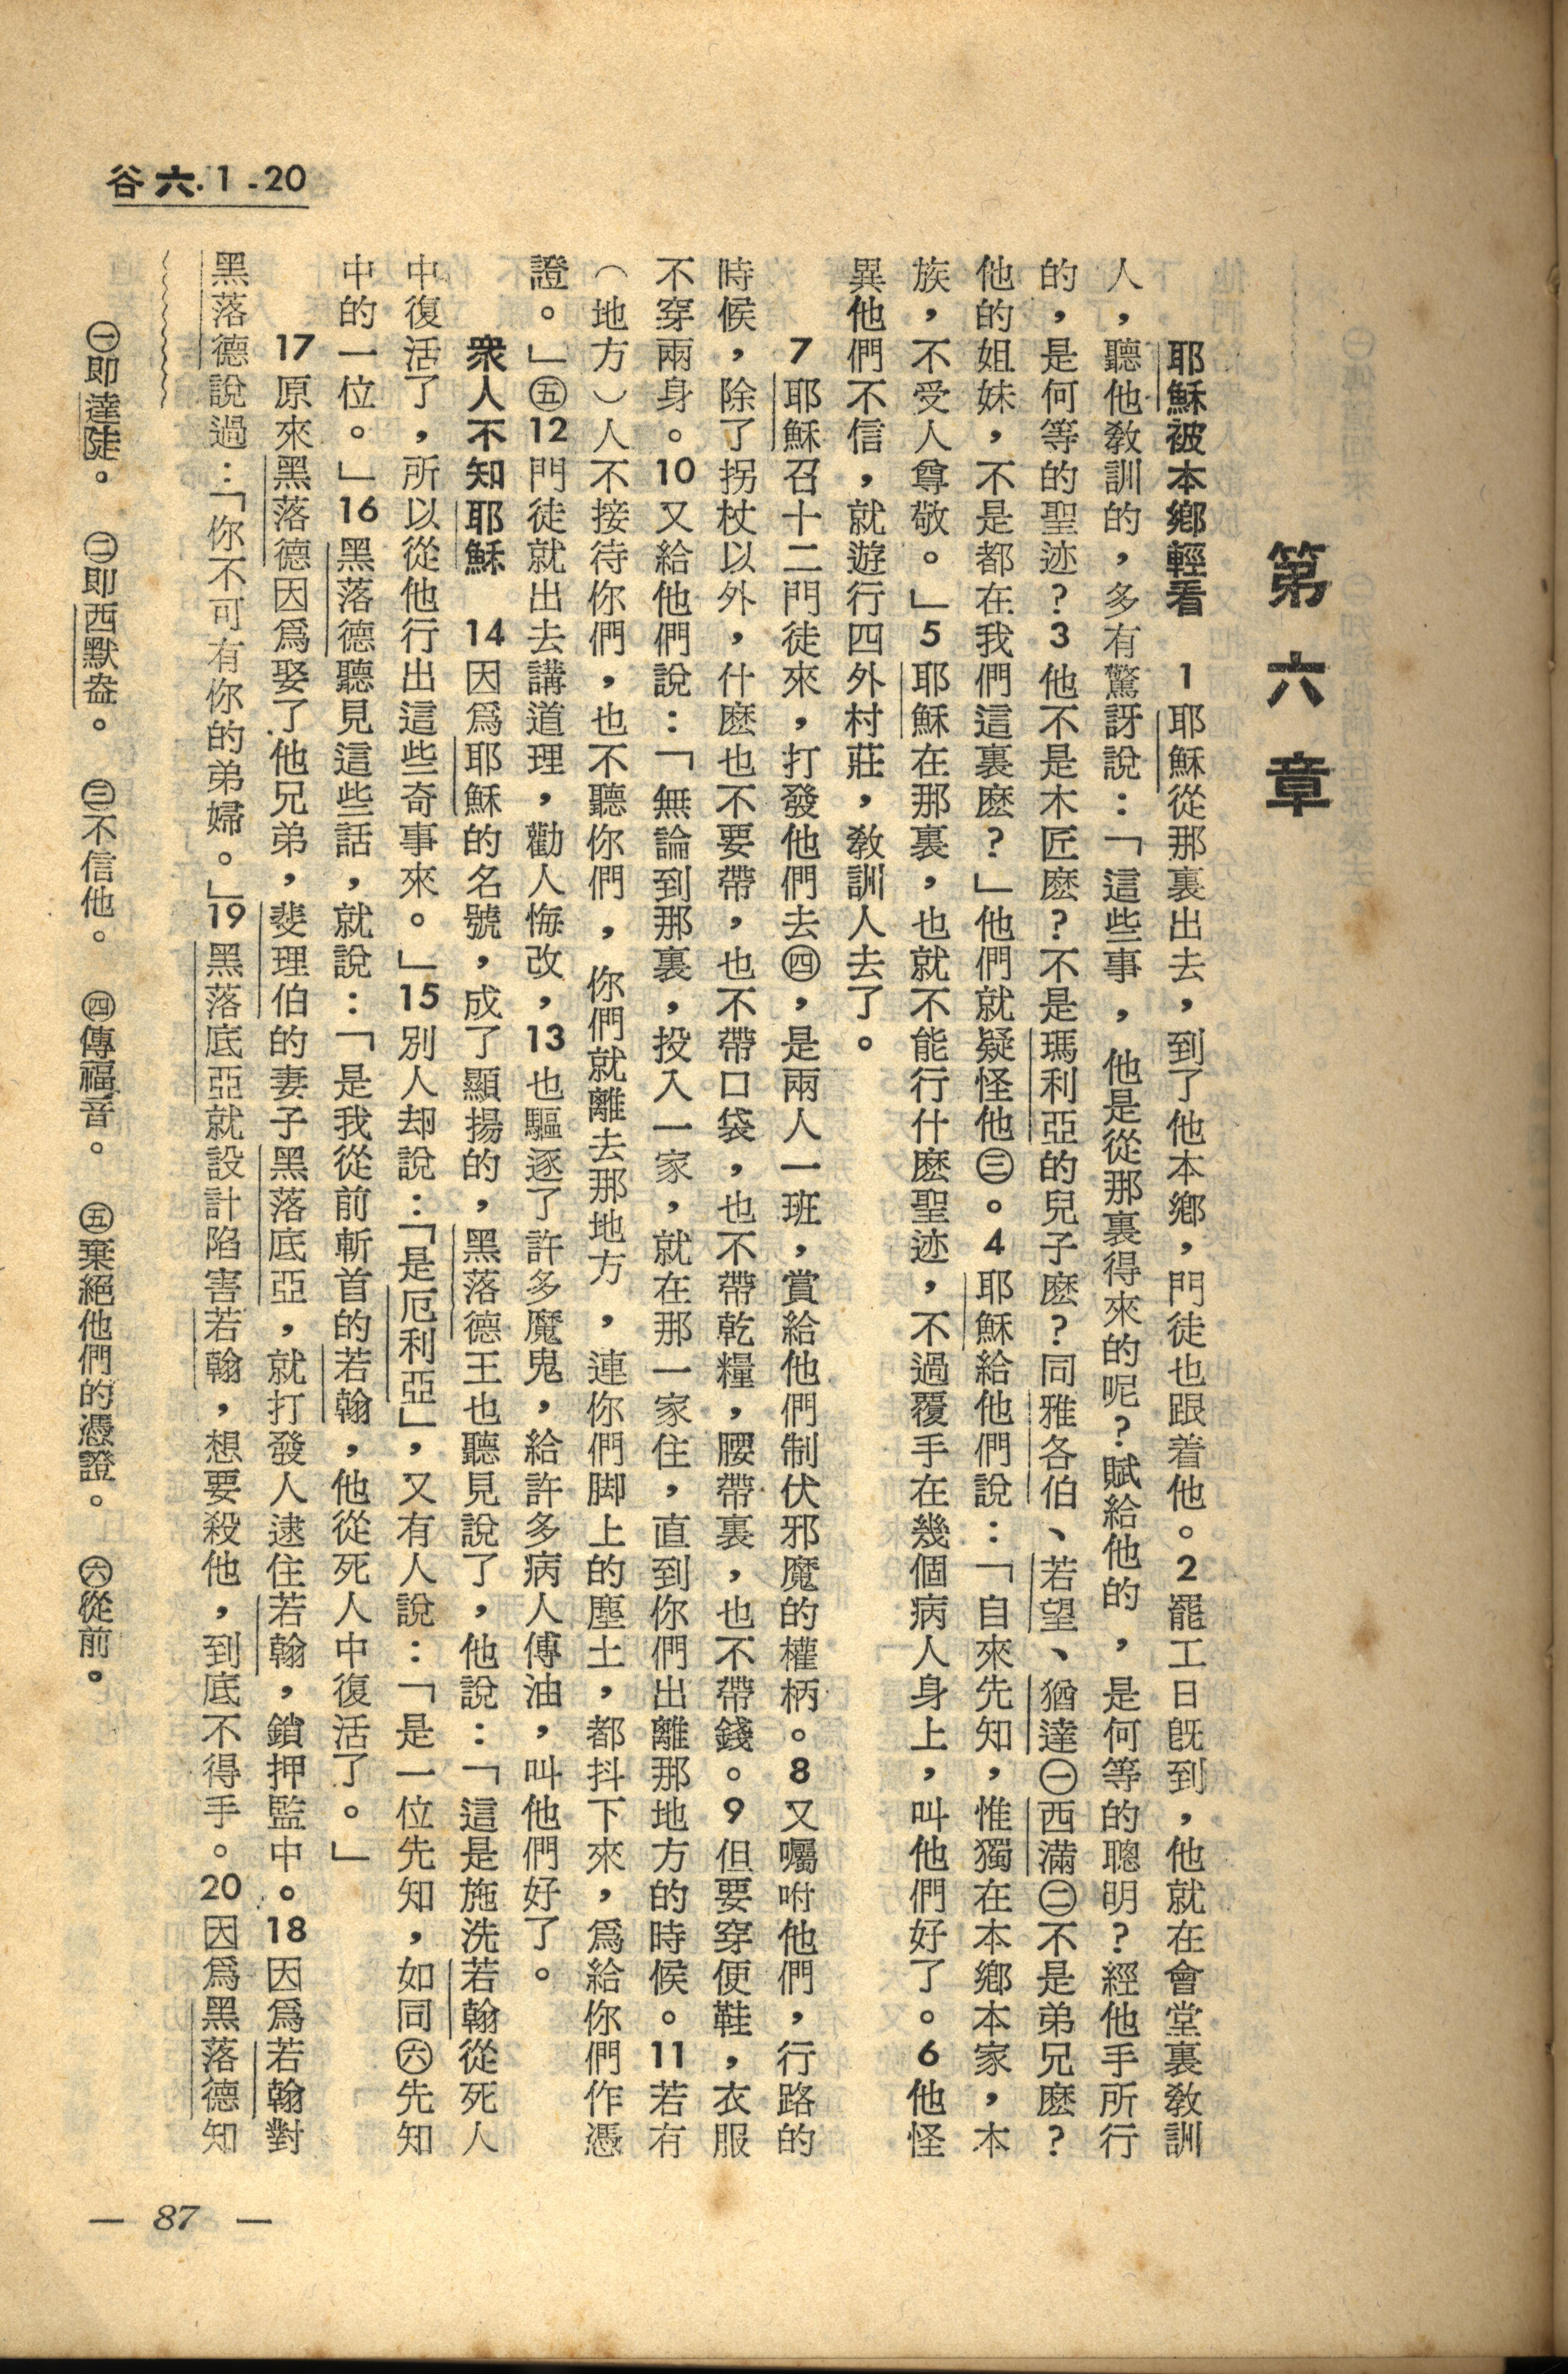 谷六.1-20
第六章
耶穌被本鄉輕看　1耶穌從那裏出去，到了他本鄉，門徒也跟着他。2罷工日旣到，他就在會堂裏教訓
人，聽他教訓的，多有驚訝說：「這些事，他是從那裏得來的呢?賦給他的，是何等的聰明?經他手所行
的，是何等的聖迹?3他不是木匠麽?不是瑪利亞的兒子麽?同雅各伯、若望、猶達㊀西滿㊁不是弟兄麽?
他的姐妹，不是都在我們這裏麽?」他們就疑怪他㊂。4耶穌給他們說：「自來先知，惟獨在本鄉本家，本
族，不受人尊敬。」5耶穌在那裏，也就不能行什麽聖迹，不過覆手在幾個病人身上，叫他們好了。6他怪
異他們不信，就遊行四外村莊，教訓人去了。
7耶穌召十二門徒來，打發他們去㊃，是兩人一班，賞給他們制伏邪魔的權柄。8又囑咐他們，行路的
時候，除了拐杖以外，什麽也不要帶，也不帶口袋，也不帶乾糧，腰帶裏，也不帶錢。9但要穿便鞋，衣服
不穿兩身。10又給他們說：「無論到那裏，投入一家，就在那一家住，直到你們出離那地方的時候。11若有
（地方）人不接待你們，也不聽你們，你們就離去那地方，連你們脚上的塵土，都抖下來，爲給你們作憑
證。」㊄12門徒就出去講道理，勸人悔改，13也驅逐了許多魔鬼，給許多病人傅油，叫他們好了。
衆人不知耶穌　14因爲耶穌的名號，成了顯揚的，黑落德王也聽見說了，他說：「這是施洗若翰從死人
中復活了，所以從他行出這些奇事來。」15別人却說：「是厄利亞」，又有人說：「是一位先知，如同㊅先知
中的一位。」16黑落德聽見這些話，就說：「是我從前斬首的若翰，他從死人中復活了。」
17原來黑落德因爲娶了他兄弟，斐理伯的妻子黑落底亞，就打發人逮住若翰，鎖押監中。18因爲若翰對
黑落德說過：「你不可有你的弟婦。」19黑落底亞就設計陷害若翰，想要殺他，到底不得手。20因爲黑落德知
㊀即達陡。　㊁即西默盎。　㊂不信他。　㊃傳福音。　㊄棄絕他們的憑證。　㊅從前。
— 87 —